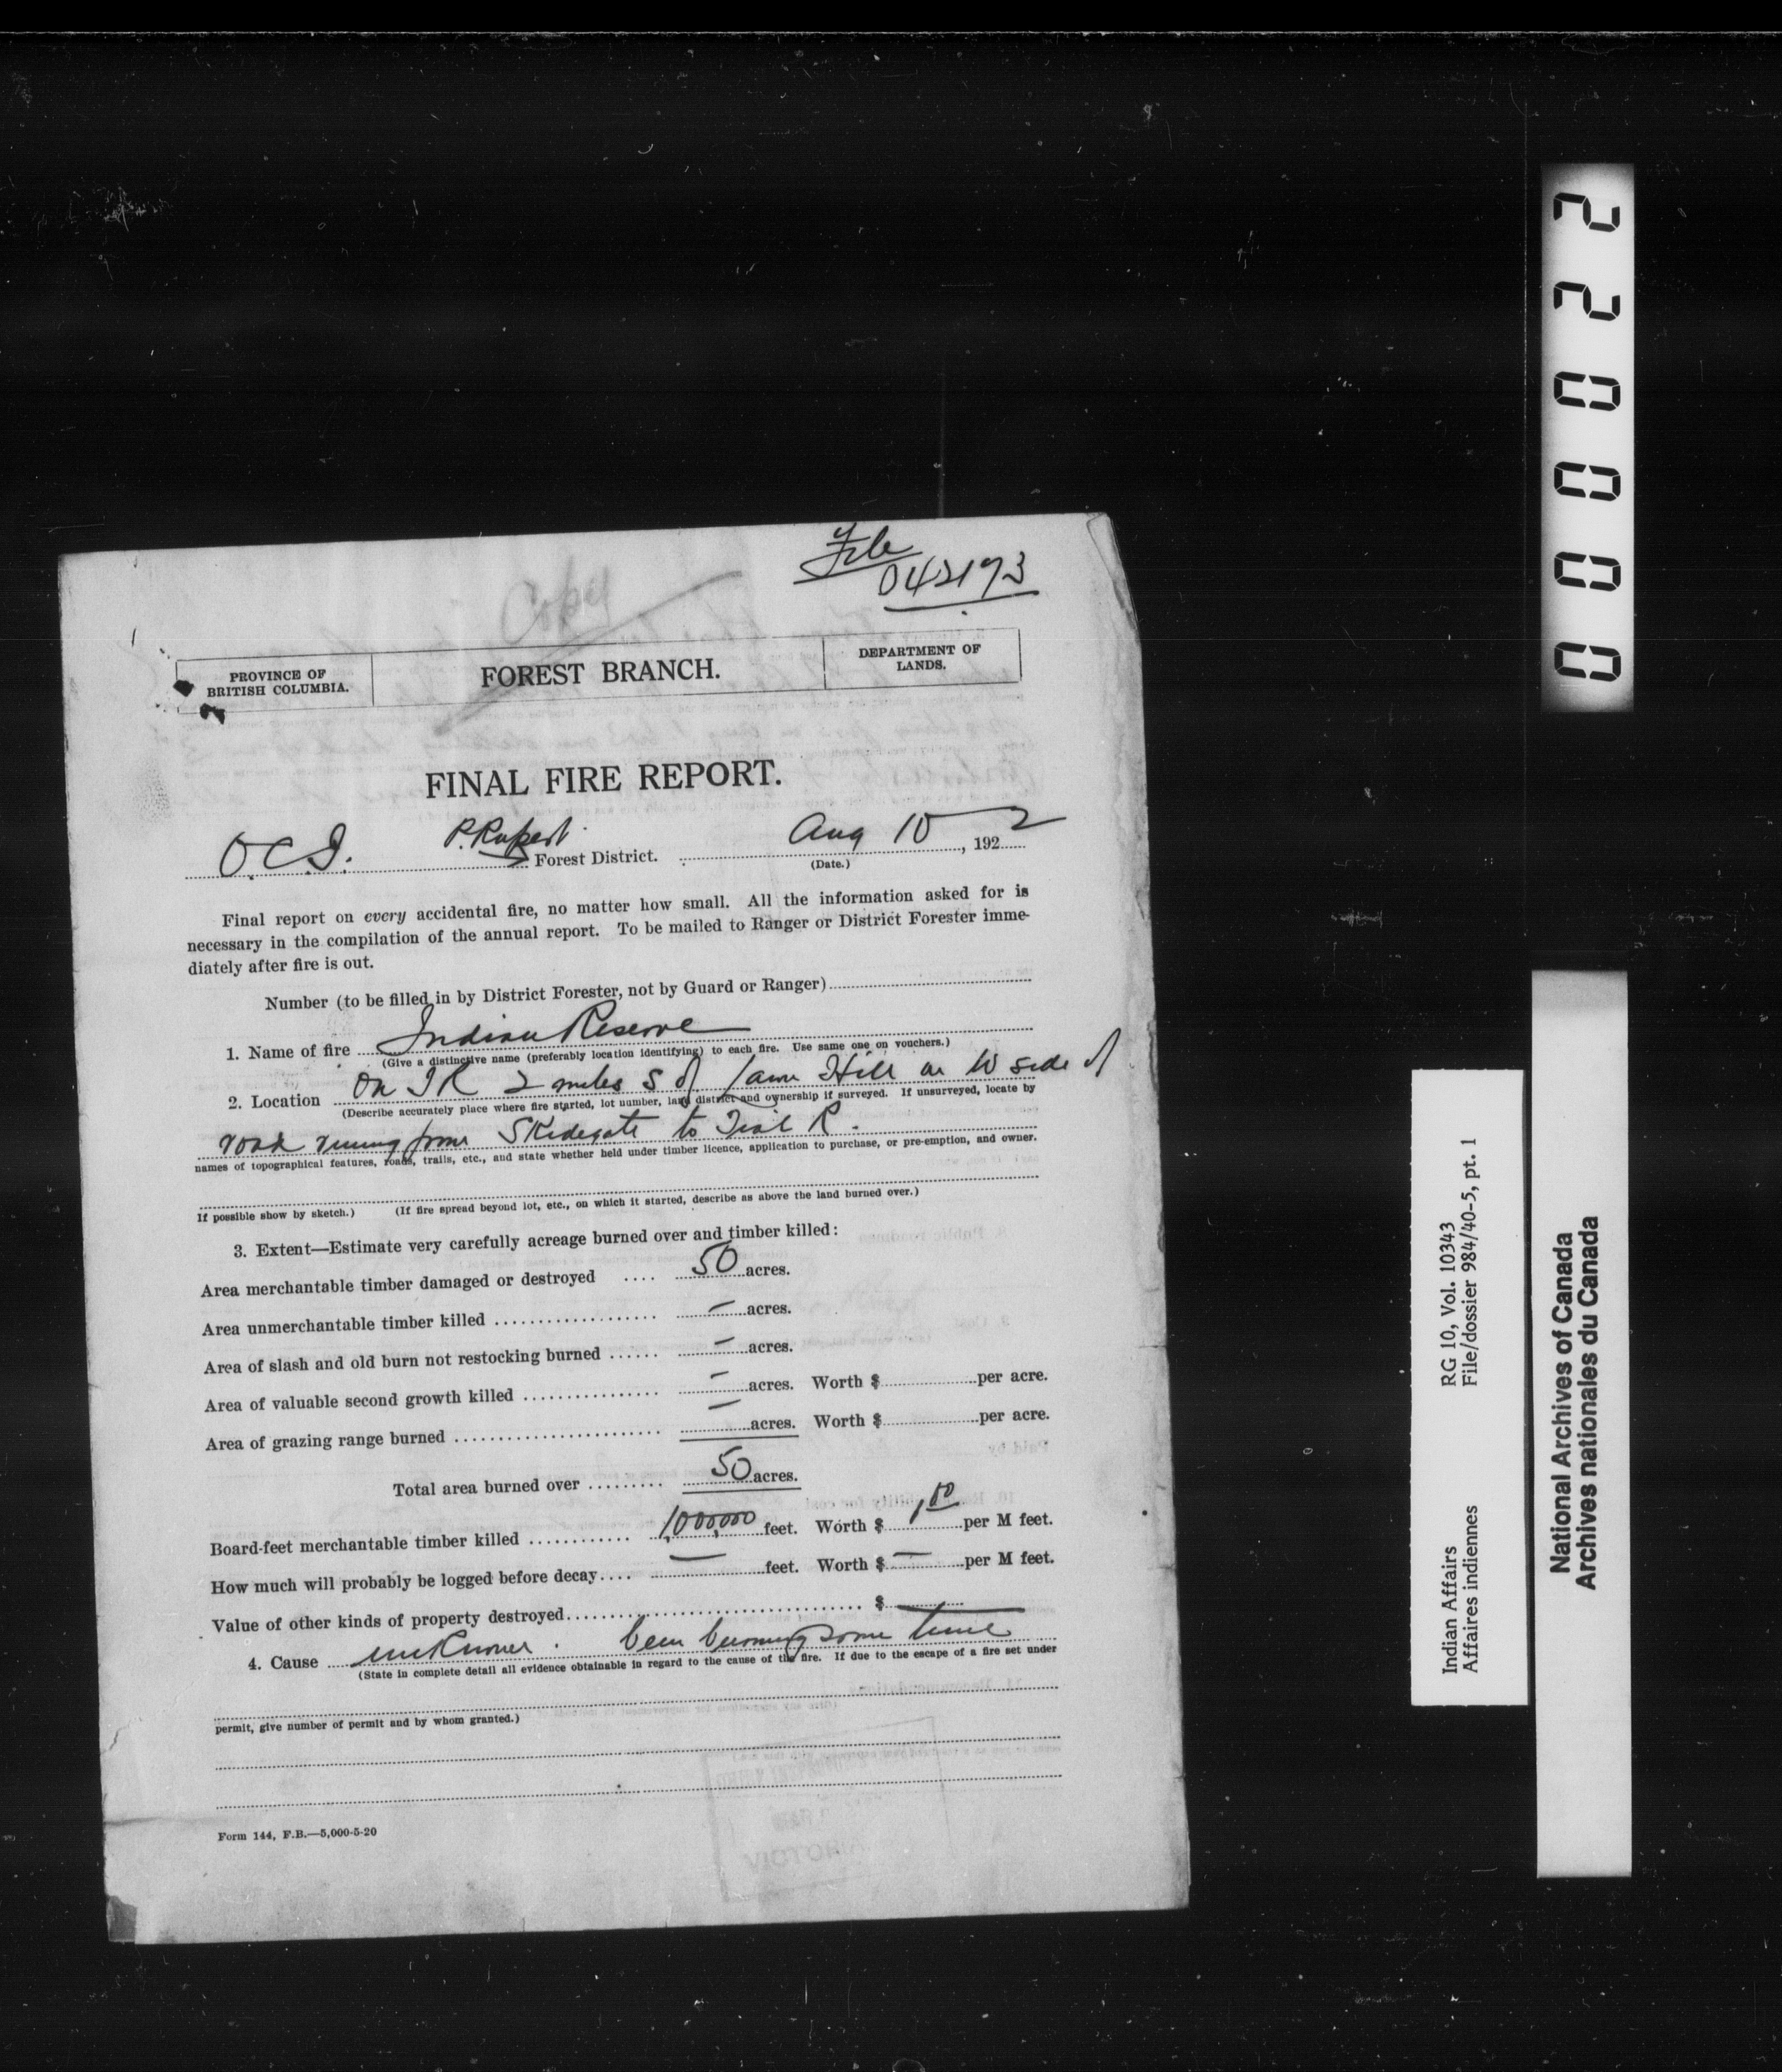 File
042173
Copy
PROVINCE OF
BRITISH COLUMBIA.
FOREST BRANCH.
DEPARTMENT OF
LANDS.
FINAL FIRE REPORT.
P. Rupert Forest District. Aug 10, 1922
(Date.)
Final report on every accidental fire, no matter how small. All the information asked for is
necessary in the compilation of the annual report. To be mailed to Ranger or District Forester imme-
diately after fire is out.
Number (to be filled in by District Forester, not by Guard or Ranger)
1. Name of fire Indian Reserve
(Give a distinctive name (preferably location identifying) to each fire. Use same one on vouchers.)
2. Location On I R 2 miles S of Lawn Hill on W side of
(Describe accurately place where fire started, lot number, land district and ownership if surveyed. If unsurveyed, locate by
road runing from Skidegate to R.
names of topographical features, roads, trails, etc., and state whether held under timber licence, application to purchase, or pre-emption, and owner.
If possible show by sketch.) (If fire spread beyond lot, etc., on which it started, describe as above the land burned over.)
3. Extent—Estimate very carefully acreage burned over and timber killed:
Area merchantable timber damaged or destroyed .... 50 acres.
Area unmerchantable timber killed .... – acres.
Area of slash and old burn not restocking burned ...... – acres.
Area of valuable second growth killed .... – acres. Worth $ per acre.
Area of grazing range burned .... – acres. Worth $ per acre.
Total area burned over ......... 50 acres.
Board-feet merchantable timber killed ............ 1,000,000 feet. Worth $ 1.00 per M feet.
How much will probably be logged before decay.... – feet. Worth $ – per M feet.
Value of other kinds of property destroyed.... $ –
4. Cause unknown. been burning some time
(State in complete detail all evidence obtainable in regard to the cause of the fire. If due to the escape of a fire set under
permit, give number of permit and by whom granted.)
Form 144, F.B.—5,000-5-20
Indian Affairs RG 10, Vol. 10343
Affaires indiennes File/dossier 984/40-5, pt. 1
National Archives of Canada
Archives nationales du Canada
000022